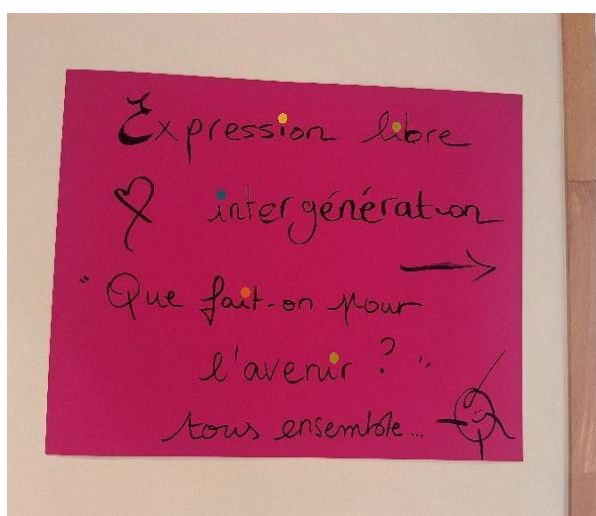 Expression libre
intergénération
"Que fait-on pour
l'avenir ?"
tous ensemble...